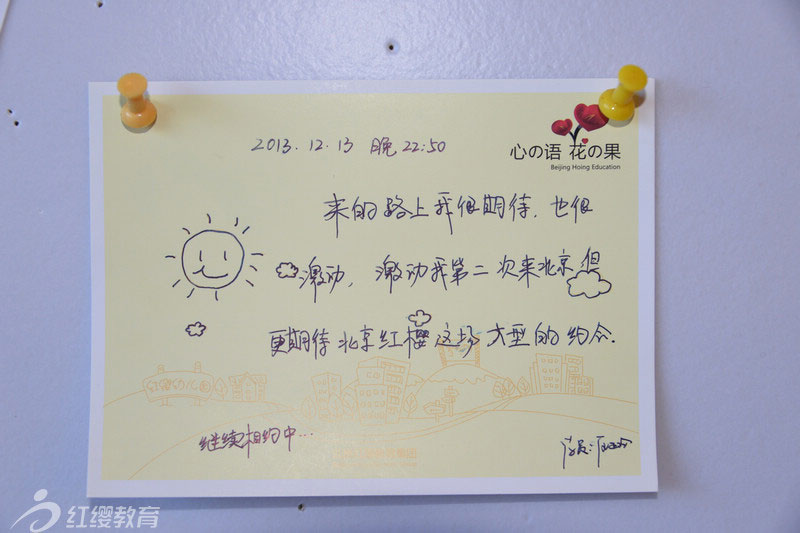 心の语 花の果
Beijing Hoing Education
2013.12.13 晚22:50
来的路上我很期待.也很
激动,激动我第二次来北京,但
更期待北京红樱这场大型的约会.
继续相约中...
学员:
红缨教育